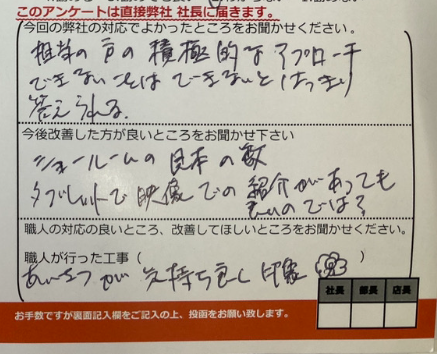 このアンケートは直接弊社 社長に届きます。
今回の弊社の対応でよかったところをお聞かせください。
担当の方の積極的なアプローチ
できないことはできないとはっきり
答えられる。
今後改善した方が良いところをお聞かせ下さい
ショールームの見本の数
タブレットで映像での紹介があっても
良いのでは?
職人の対応の良いところ、改善してほしいところをお聞かせください。
職人が行った工事( )
あいさつが気持ち良く印象
社長 部長 店長
お手数ですが裏面記入欄をご記入の上、投函をお願い致します。